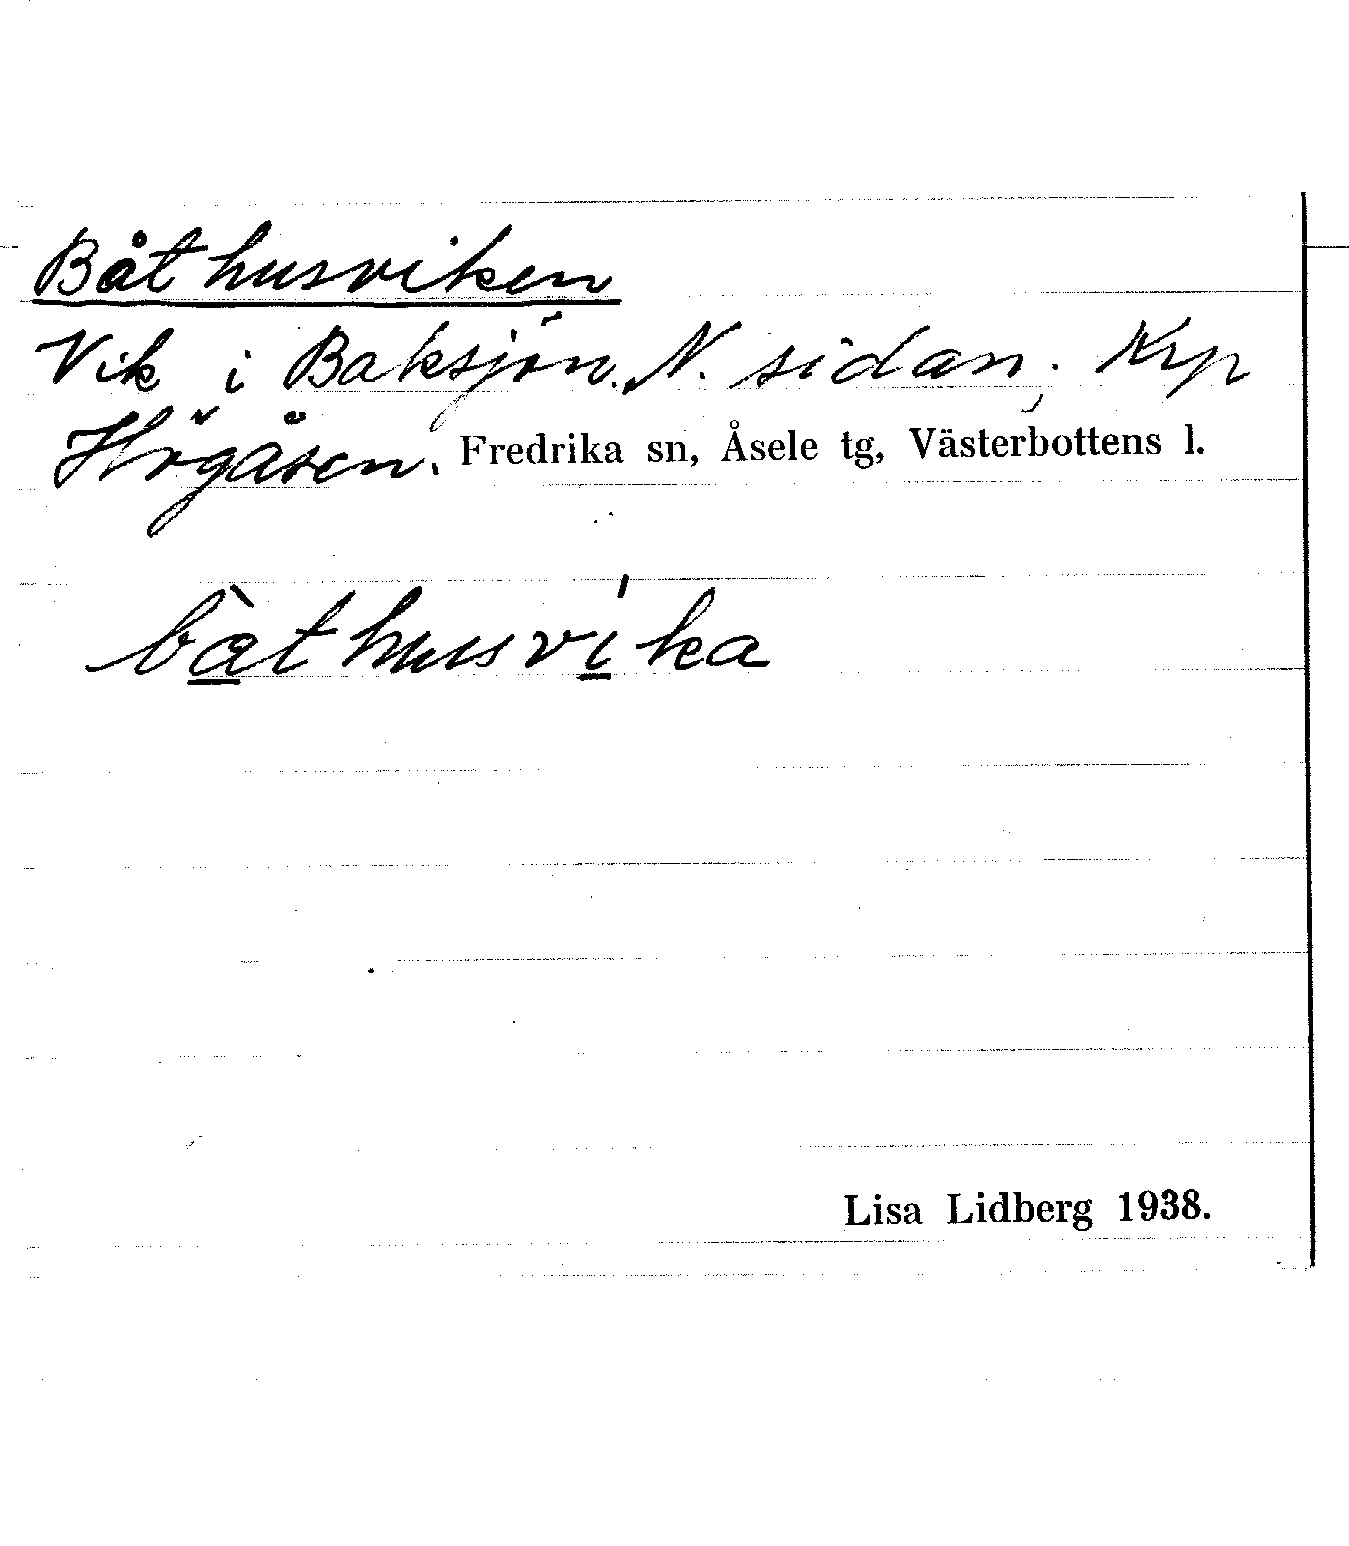 Båthusviken
Vik i Baksjön. N. sidan, Krp
Högåsen. Fredrika sn, Åsele tg, Västerbottens l.
bàthusvíka
Lisa Lidberg 1938.